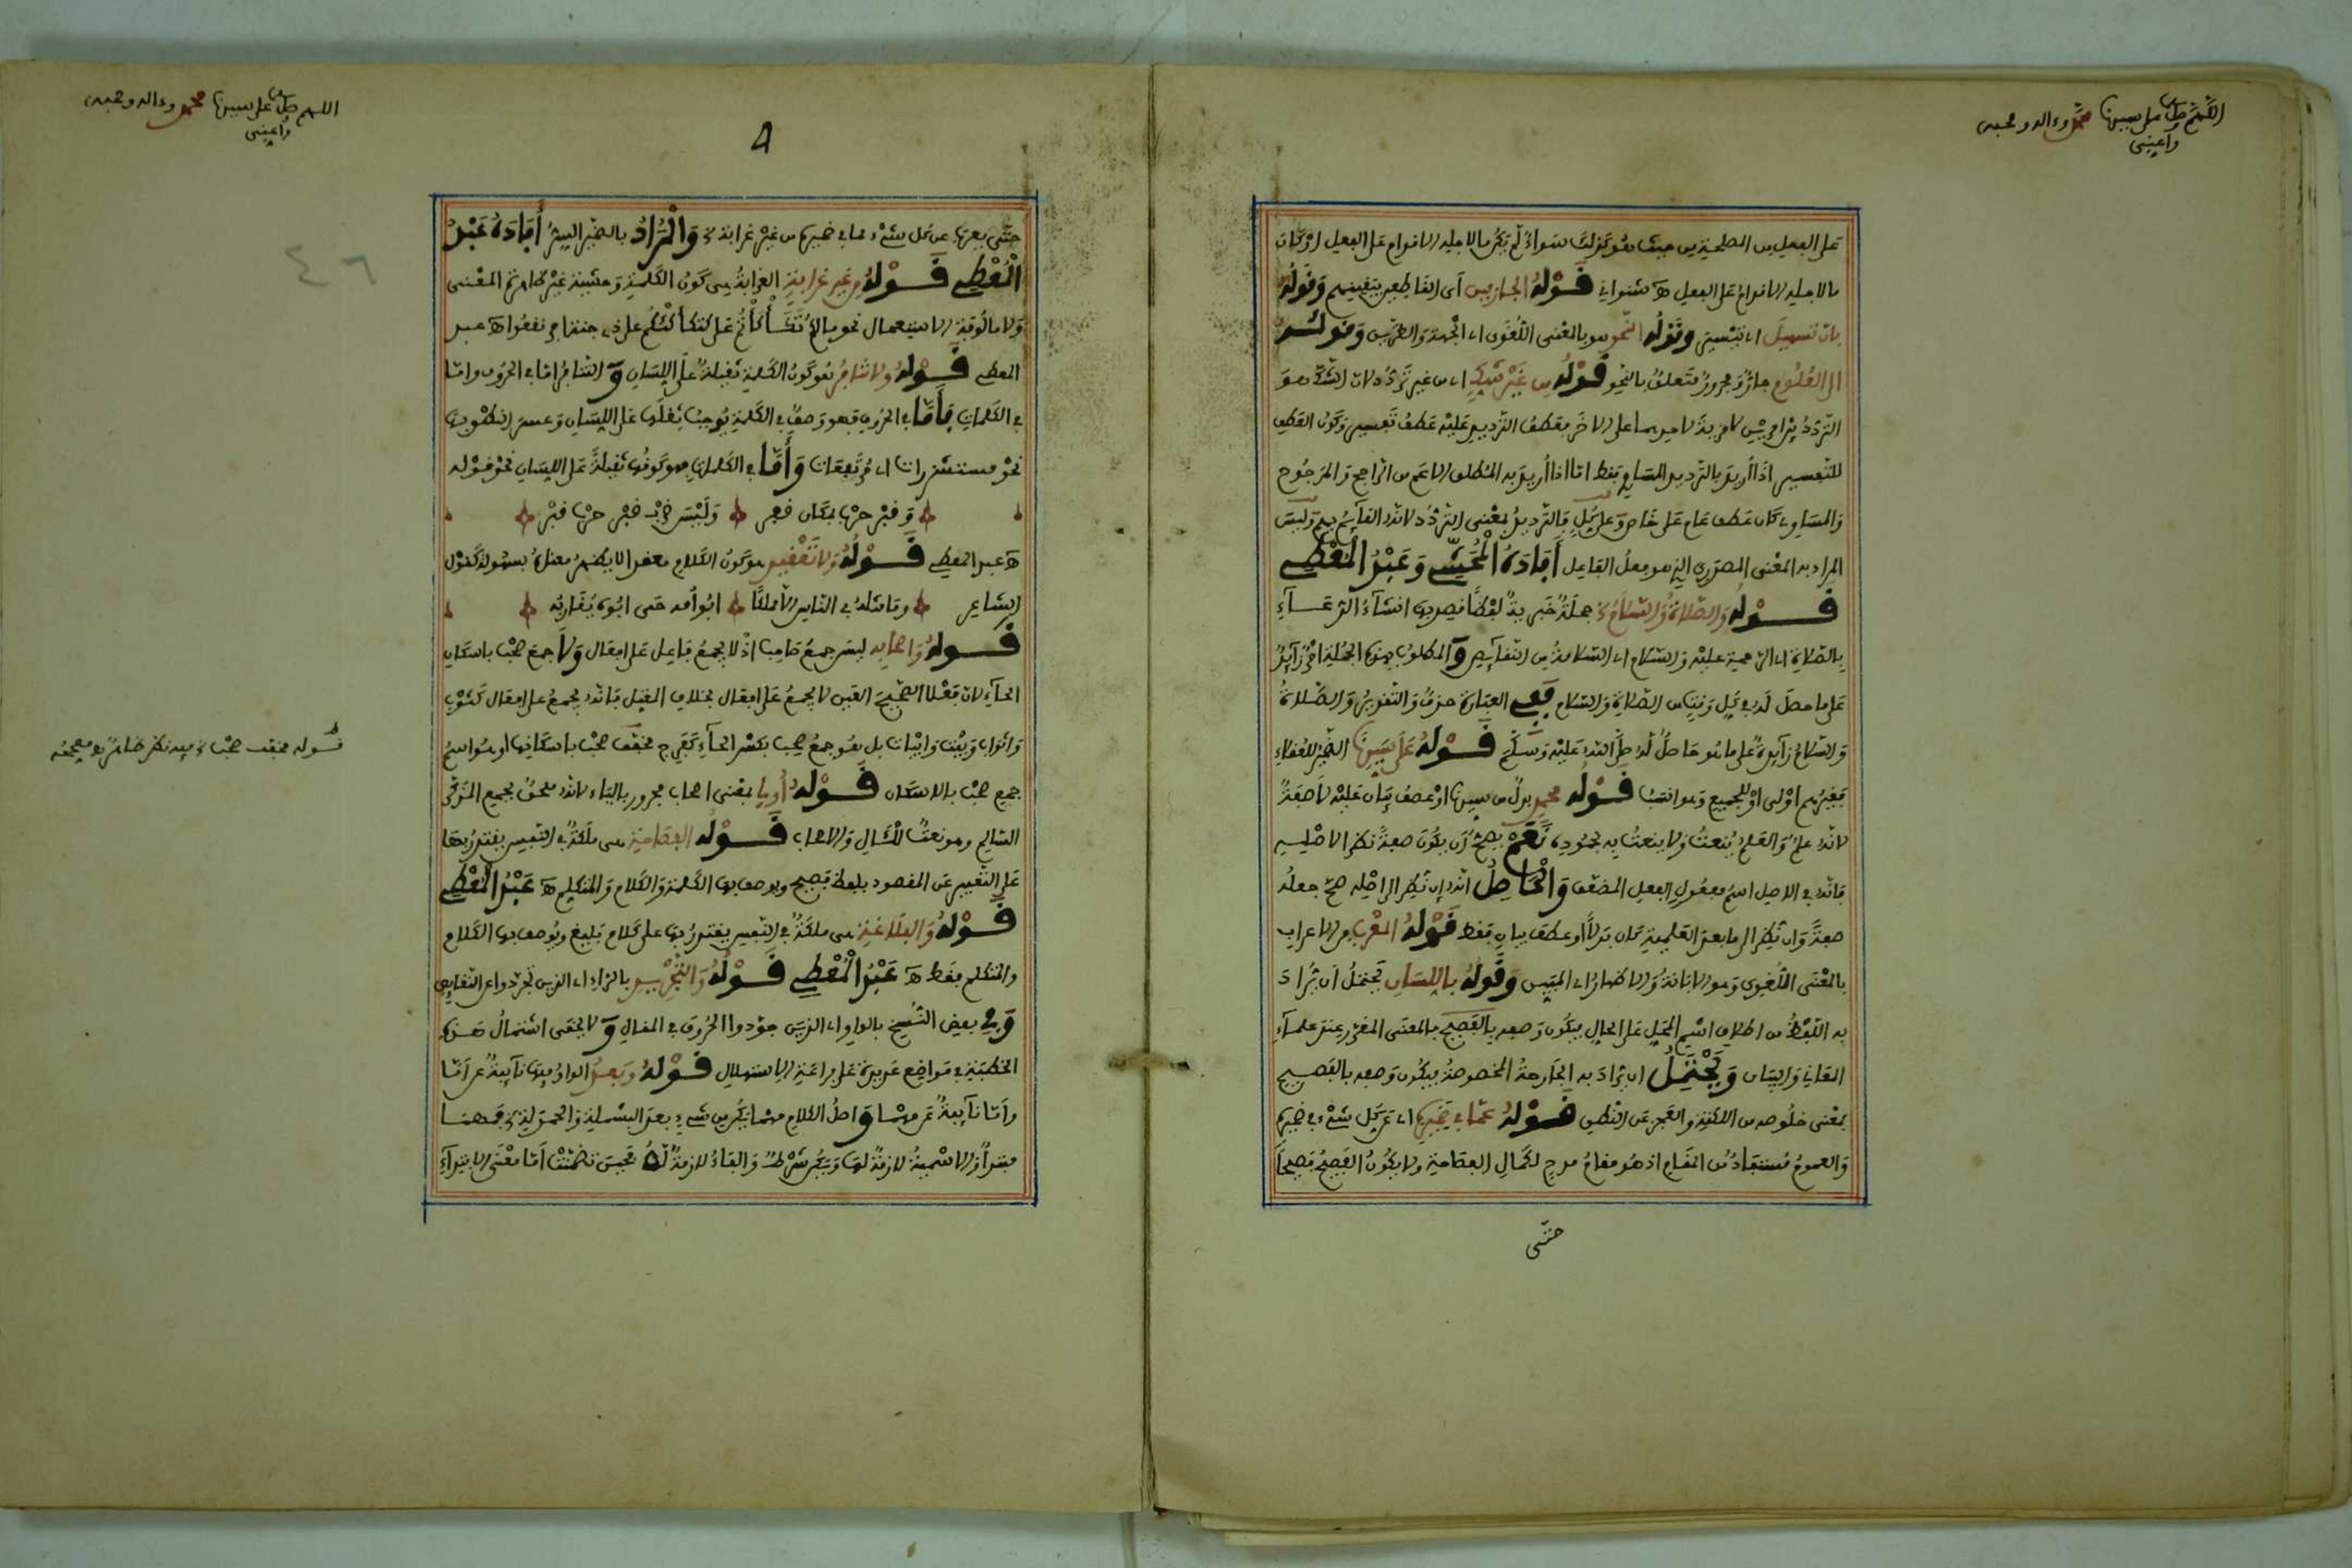 اللهم صل على سيدنا محمد وءاله وصحبه
واعيني
على الفعل من المصلحة من حيث هو كذلك سواء لم يكن بالاجله الاقدام على الفعل او كان
بالاجله الاقدام على الفعل ه شنواني قوله الجازمين اى القاطعين بتيقينهم وقوله
بان تسهيل اى تيسير وقوله النحو هو بالمعنى اللغوى اى الجهة والطريق وقوله
الى العلوم جار ومجرور متعلق بالنحو قوله من غير شك اى من غير تردد لان الشك هو
التردد بين امرين لا مزية لاحدهما على الاخر فعطف الترديد عليه عطف تفسير وكون العطف
للتفسير اذا اريد بالترديد المساوى فقط اما اذا اريد به المطلق الاعم من الراجح والمرجوح
والمساوى كان عطف عام على خاص وعلى كل فالترديد بمعنى التردد لانه القائم بهم وليس
المراد به المعنى المصدرى الذى هو فعل الفاعل أفاده المحشى وعبد المعطى
قوله والصلاة والسلام الخ جملة خبرية لفظا قصد بها انشاء الدعاء
بالصلاة اى الرحمة عليه والسلام اى السلامة من النقائص و المطلوب بهذه الجملة امر زائد
على ما حصل له في كل وقت من الصلاة والسلام ففى العبارة حذف والتقدير والصلاة
والسلام زائدة على ما هو حاصل له صلى الله عليه وسلم قوله على سيدنا الضمير للعقلاء
فغيرهم اولى او للجميع وهو انسب قوله محمد بدل من سيدنا او عطف بيان عليه لا صفة
لانه علم والعلم ينعت ولا ينعت به لجموده نعم يصح أن يكون صفة نظرا لاصله
فانه في الاصل اسم مفعول الفعل المضعف والحاصل انه ان نظر الى اصله صح جعله
صفة وان نظر الى ما بعد العلمية كان بدلا او عطف بيان فقط قوله المعرب من الاعراب
بالمعنى اللغوى وهو الابانة والاظهار اى المبين وقوله باللسان يحتمل أن يراد
به اللفظ من اطلاق اسم المحل على الحال فيكون وصفه بالفصيح بالمعنى المقرر عند علماء
المعانى والبيان ويحتمل ان يراد به الجارحة المخصوصة فيكون وصفه بالفصيح
بمعنى خلوصه من اللكنة والعجز عن النطق قوله عما فى ضميره اى عن كل شىء في ضميره
والعموم مستفاد من المقام اذ هو مقام مدح لكمال الفصاحة ولا يكون الفصيح فصيحا
حتى
اللهم صل على سيدنا محمد وءاله وصحبه
واعيني
٤٦
حتى يعرب عن كل شىء مما في ضميره من غير غرابة الخ والمراد بالضمير السر أفاده عبد
المعطى قوله من غير غرابة الغرابة هى كون الكلمة وحشية غير ظاهرة المعنى
ولا مألوفة الاستعمال نحو ما لكم تكأكأتم على كتكأكئكم على ذى جنة افرنقعوا ه عبد
المعطى قوله ولا تنافر هو كون الكلمة ثقيلة على اللسان و التنافر اما في الحروف واما
في الكلمات فأما في الحروف فهو وصف في الكلمة يوجب ثقلها على اللسان وعسر النطق بها
نحو مستشزرات اى مرتفعات وأما في الكلمات فهو كونها ثقيلة على اللسان نحو قوله
وقبر حرب بمكان قفر وليس قرب قبر حرب قبر
ه عبد المعطى قوله ولا تعقيد هو كون الكلام معقدا لا يظهر معناه بسهولة كقول
الشاعر وما مثله في الناس الا مملكا ابو امه حى ابوه يقاربه
قوله واصحابه ليس جمع صاحب اذ لا يجمع فاعل على افعال ولا جمع صحب باسكان
الحاء لان فعلا الصحيح العين لا يجمع على افعال بخلاف المعتل فانه يجمع على افعال كثوب
واثواب وبيت وابيات بل هو جمع صحب بكسر الحاء كفرح مخفف صحب باسكانها او هو اسم
جمع صحب بالاسكان قوله أولى بمعنى اصحاب مجرور بالياء لانه ملحق بجمع المذكر
السالم وهو نعت للآل والاصحاب قوله الفصاحة هى ملكة في النفس يقتدر بها
على التعبير عن المقصود بلفظ فصيح ويوصف بها الكلمة والكلام والمتكلم ه عبد المعطى
قوله والبلاغة هى ملكة في النفس يقتدر بها على كلام بليغ ويوصف بها الكلام
والمتكلم فقط ه عبد المعطى قوله والتجريد بالراء اى الذين تجردوا عن النقائص
وفى بعض النسخ بالواو اى الذين جودوا الحروف في المقال و لا يخفى اشتمال هذه
الخطبة في مواضع عديدة على براعة الاستهلال قوله وبعد الواو فيها نائبة عن أما
وأما نائبة عن مهما و اصل الكلام مهما يكن من شىء بعد البسملة والحمدلة الخ فمهما
مبتدأ والاسمية لازمة لها ويكن شرط والفاء لازمة له فحين تضمنت أما معنى الابتداء
قوله مخفف صحب الخ فيه نظر ظاهر اه مصححه